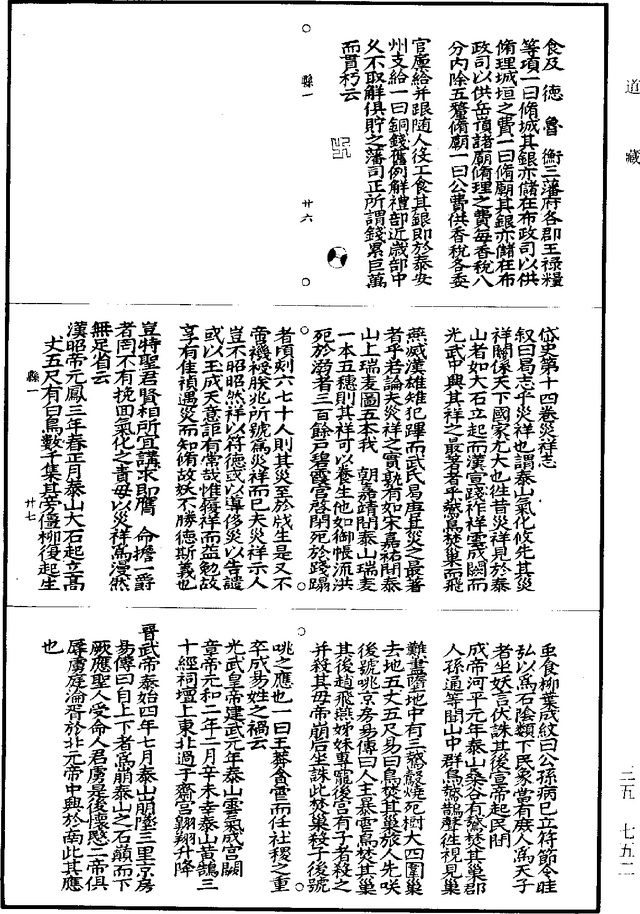 道藏
食及　德　魯　衡三藩府各郡王祿糧
等項一曰脩城其銀亦儲在布政司以供
脩理城垣之費一曰脩廟其銀亦儲在布
政司以供岳頂諸廟脩理之費每香稅八
分內除五釐脩廟一曰公費供香稅各委
官廩給并跟隨人役工食其銀即於泰安
州支給一曰銅錢舊例解禮部近歲部中
乆不取解俱貯之藩司正所謂錢累巨萬
而貫朽云
縣一
廿六
岱史第十四卷災祥志
叙曰易志乎災祥也謂泰山氣化攸先其災
祥關係天下國家尤大也徃昔災祥見於泰
山者如大石立起而漢宣踐祚祥雲成闕而
光武中興其祥之最著者乎鷔鳥焚巢而飛
燕烕漢雄雉犯蹕而武氏易唐其災之最著
者乎若論夫災祥之實孰有如宋嘉祐間泰
山上瑞麦圖五本我　朝嘉靖間泰山瑞麦
一本五穗則其祥可以養生他如御帳流洪
死於溺者三百餘戶碧霞宮啓閉死於踐蹋
者頃刻六七十人則其災至於戕生是又不
啻禨祲朕兆所號為災祥而已夫災祥示人
豈不昭昭然祥以符德或以導侈災以告譴
或以玉成天意詎有常哉惟獲祥而益勉故
享有住禎遇災而知脩故妖不勝德斯義也
豈特聖君賢相所宜講求即膺　命擔一爵
者罔不有挽回氣化之責毋以災祥為漫然
無足省云
漢昭帝元鳳三年春正月泰山大石起立高
丈五尺有白鳥數千集其旁僵柳復起生
縣一
廿七
虫食柳葉成紋曰公孫病已立符節令眭
弘以為石陰類下民象當有庶人為天子
者坐妖言伏誅其後宣帝起民間
成帝河平元年泰山桑谷有鷔焚其巢郡
人孫通等聞山中群鳥鷔鵲聲徃視見巢
難盡墮地中有三鷔鷇燒死樹大四圍巢
去地五丈五尺易曰鳥焚其巢旅人先咲
後號咷京房易傳曰人主暴雪鳥焚其巢
其後趙飛燕姊妹專寵後宮有子者殺之
并殺其母帝崩后坐誅此焚巢殺子後號
咷之應也一曰王莽貪虐而任社稷之重
卒成易姓之禍云
光武皇帝建武元年泰山雲氣成宮闕
章帝元和二年二月辛未幸泰山黃鵠三
十經祠壇上東北過于齋宮翾翔升降
晉武帝泰始四年七月泰山崩墜三里京房
易傳曰自上下者為崩泰山之石顛而下
厥應聖人受命人君虜是後懷愍二帝俱
辱虜庭淪胥於北元帝中興於南此其應
也
三五　七九二